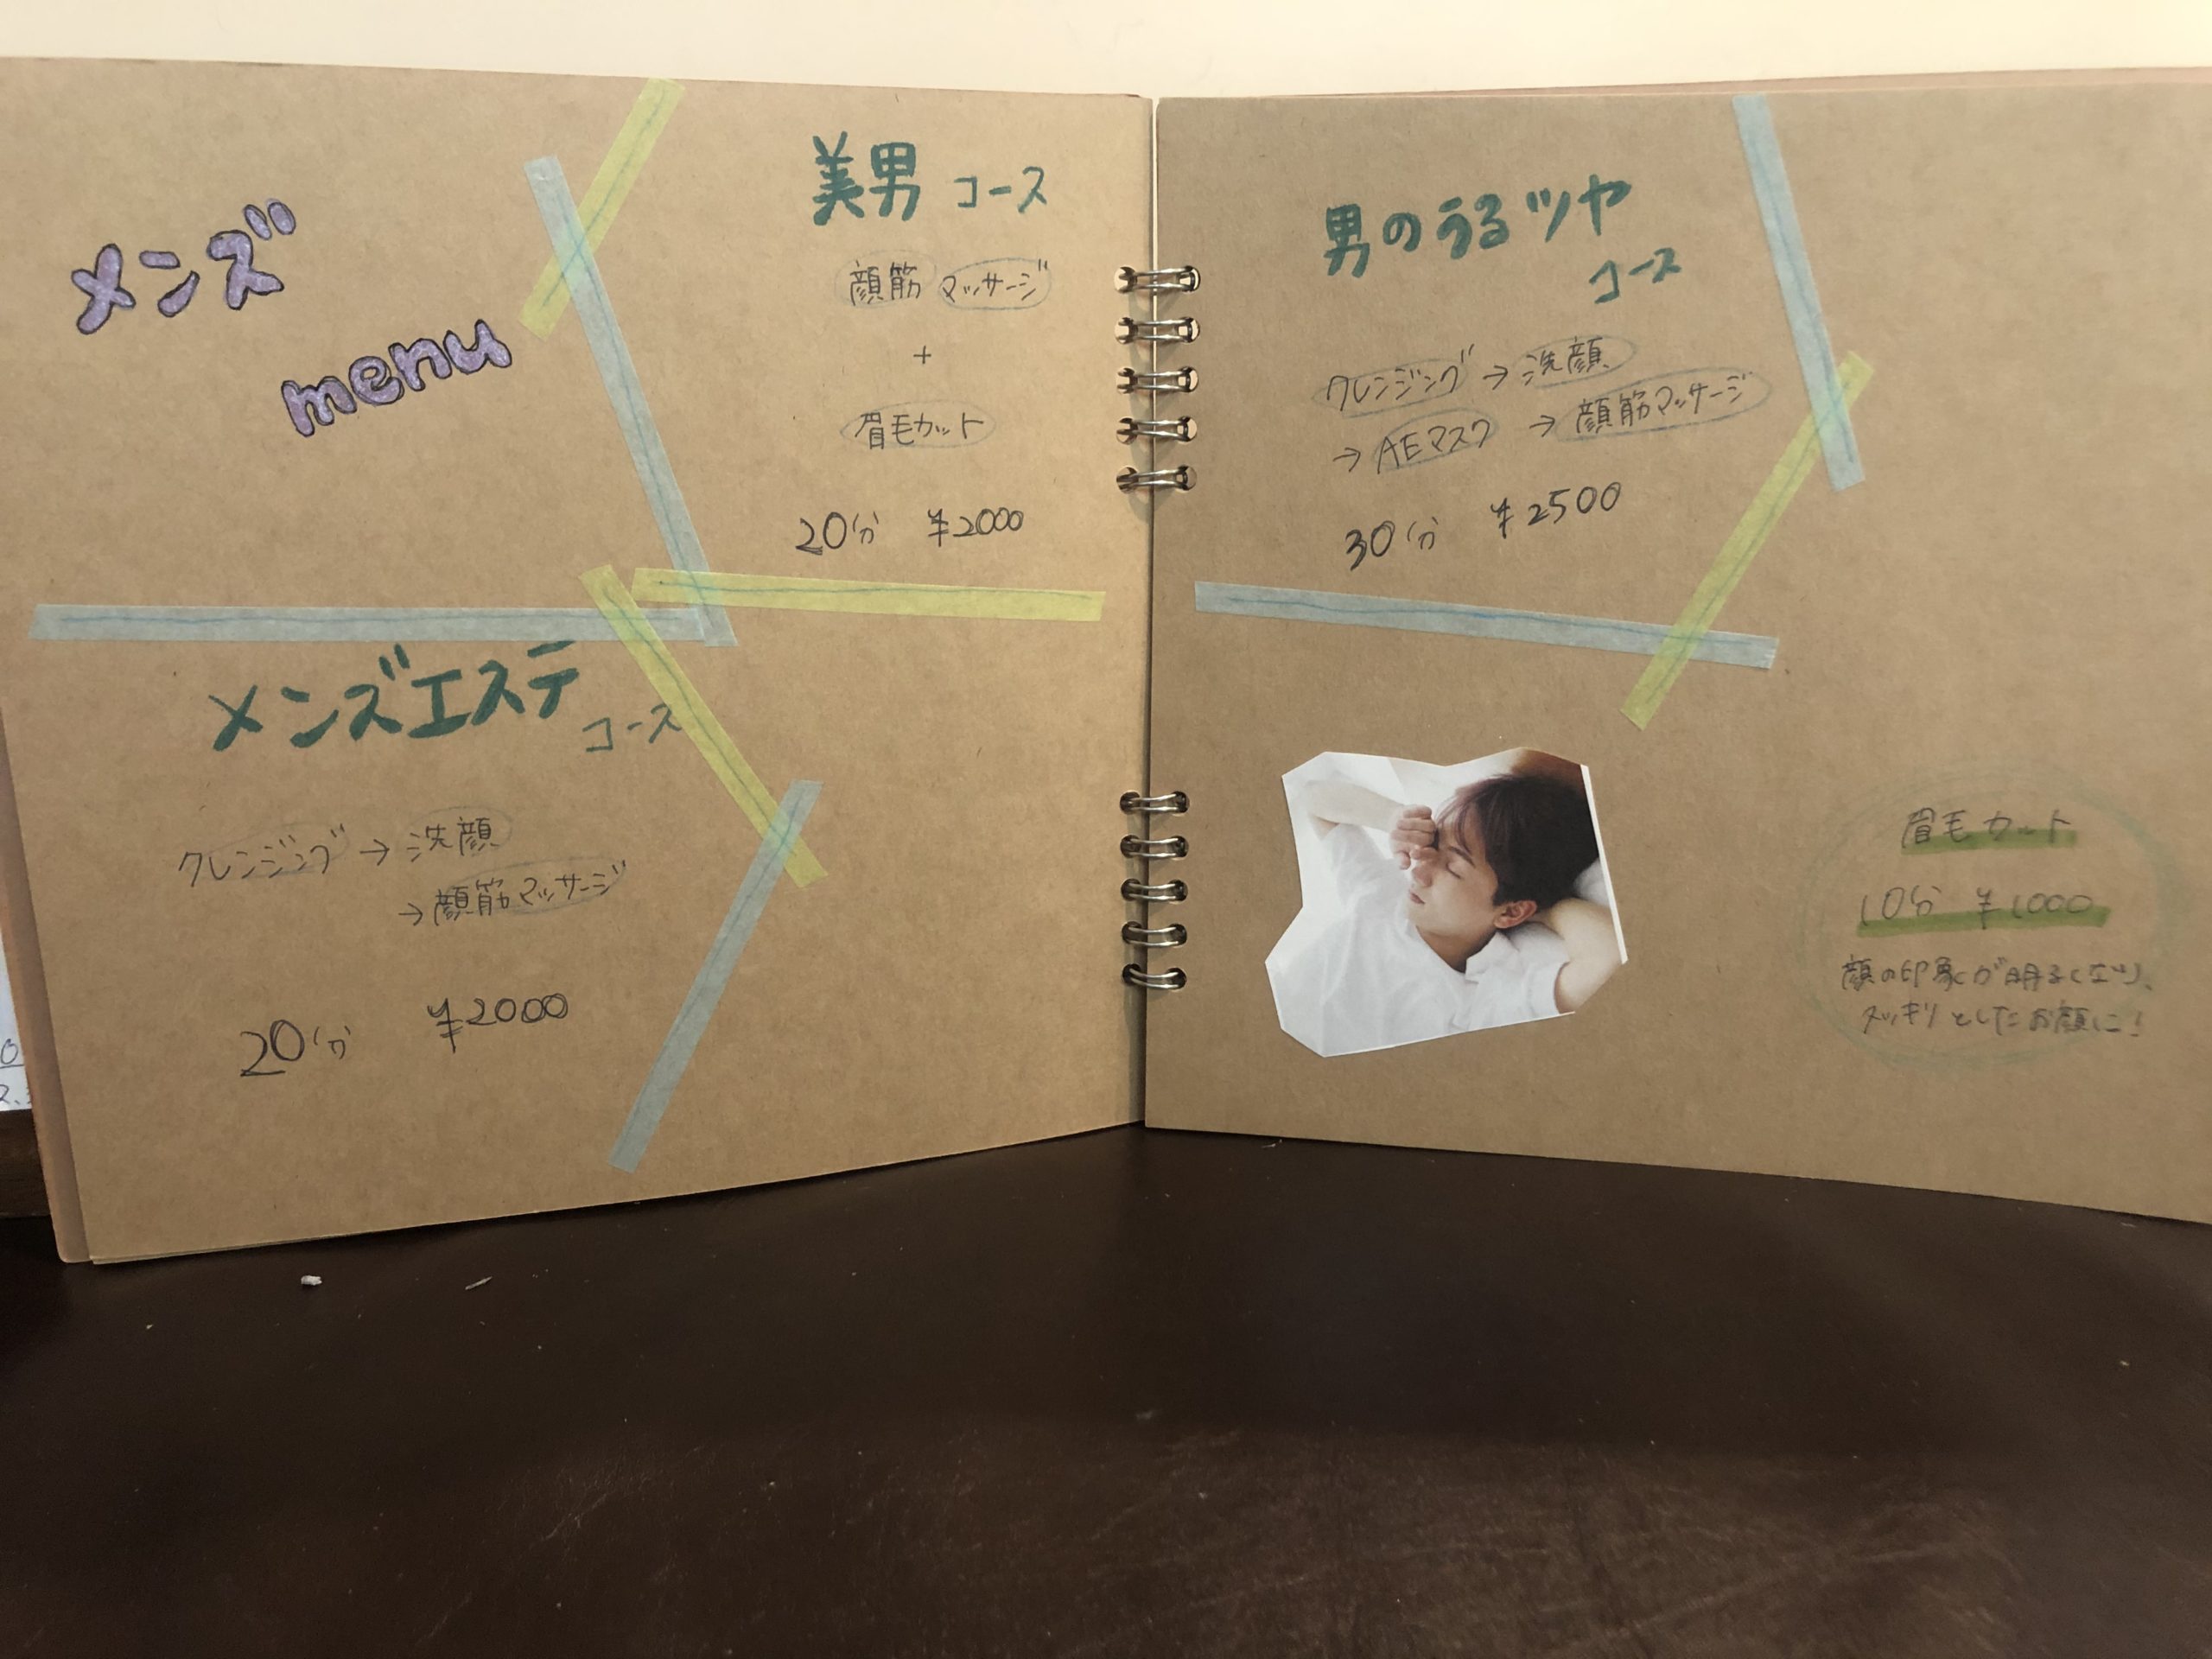 メンズ
menu
美男 コース
顔筋 マッサージ
+
眉毛カット
20分 ¥2000
メンズエステ
コース
クレンジング → 洗顔
→ 顔筋マッサージ
20分 ¥2000
男のうるツヤ
コース
クレンジング → 洗顔
→ AEマスク → 顔筋マッサージ
30分 ¥2500
眉毛カット
10分 ¥1000
顔の印象が明るくなり、
スッキリとしたお顔に!